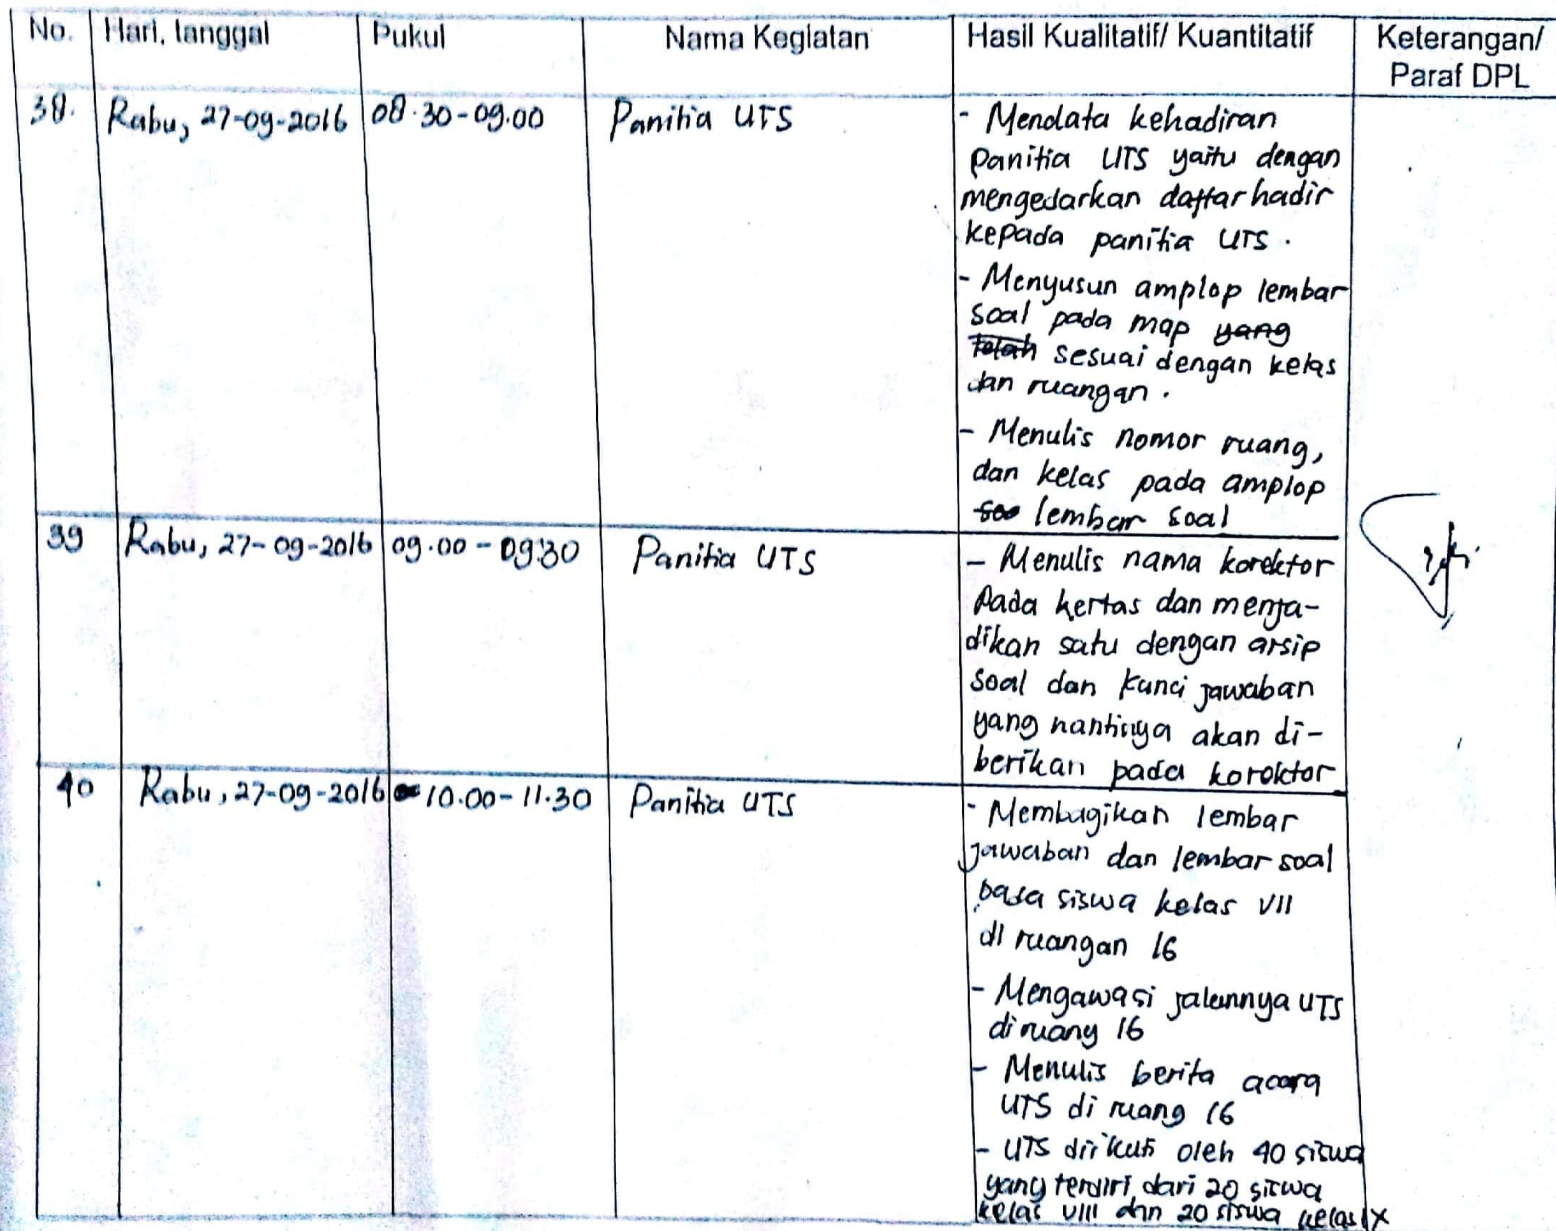 No. Hari, tanggal Pukul Nama Kegiatan Hasil Kualitatif/ Kuantitatif Keterangan/
Paraf DPL
38. Rabu, 27-09-2016 08.30-09.00 Panitia UTS - Mendata kehadiran
panitia UTS yaitu dengan
mengedarkan daftar hadir
kepada panitia UTS.
- Menyusun amplop lembar
soal pada map yang
telah sesuai dengan kelas
dan ruangan.
- Menulis nomor ruang,
dan kelas pada amplop
soa lembar soal
39 Rabu, 27-09-2016 09.00-09.30 Panitia UTS - Menulis nama korektor
pada kertas dan menja-
dikan satu dengan arsip
soal dan kunci jawaban
yang nantinya akan di-
berikan pada korektor
40 Rabu, 27-09-2016 10.00-11.30 Panitia UTS - Membagikan lembar
jawaban dan lembar soal
pada siswa kelas VII
di ruangan 16
- Mengawasi jalannya UTS
di ruang 16
- Menulis berita acara
UTS di ruang 16
- UTS diikuti oleh 40 siswa
yang terdiri dari 20 siswa
kelas VIII dan 20 siswa kelas IX